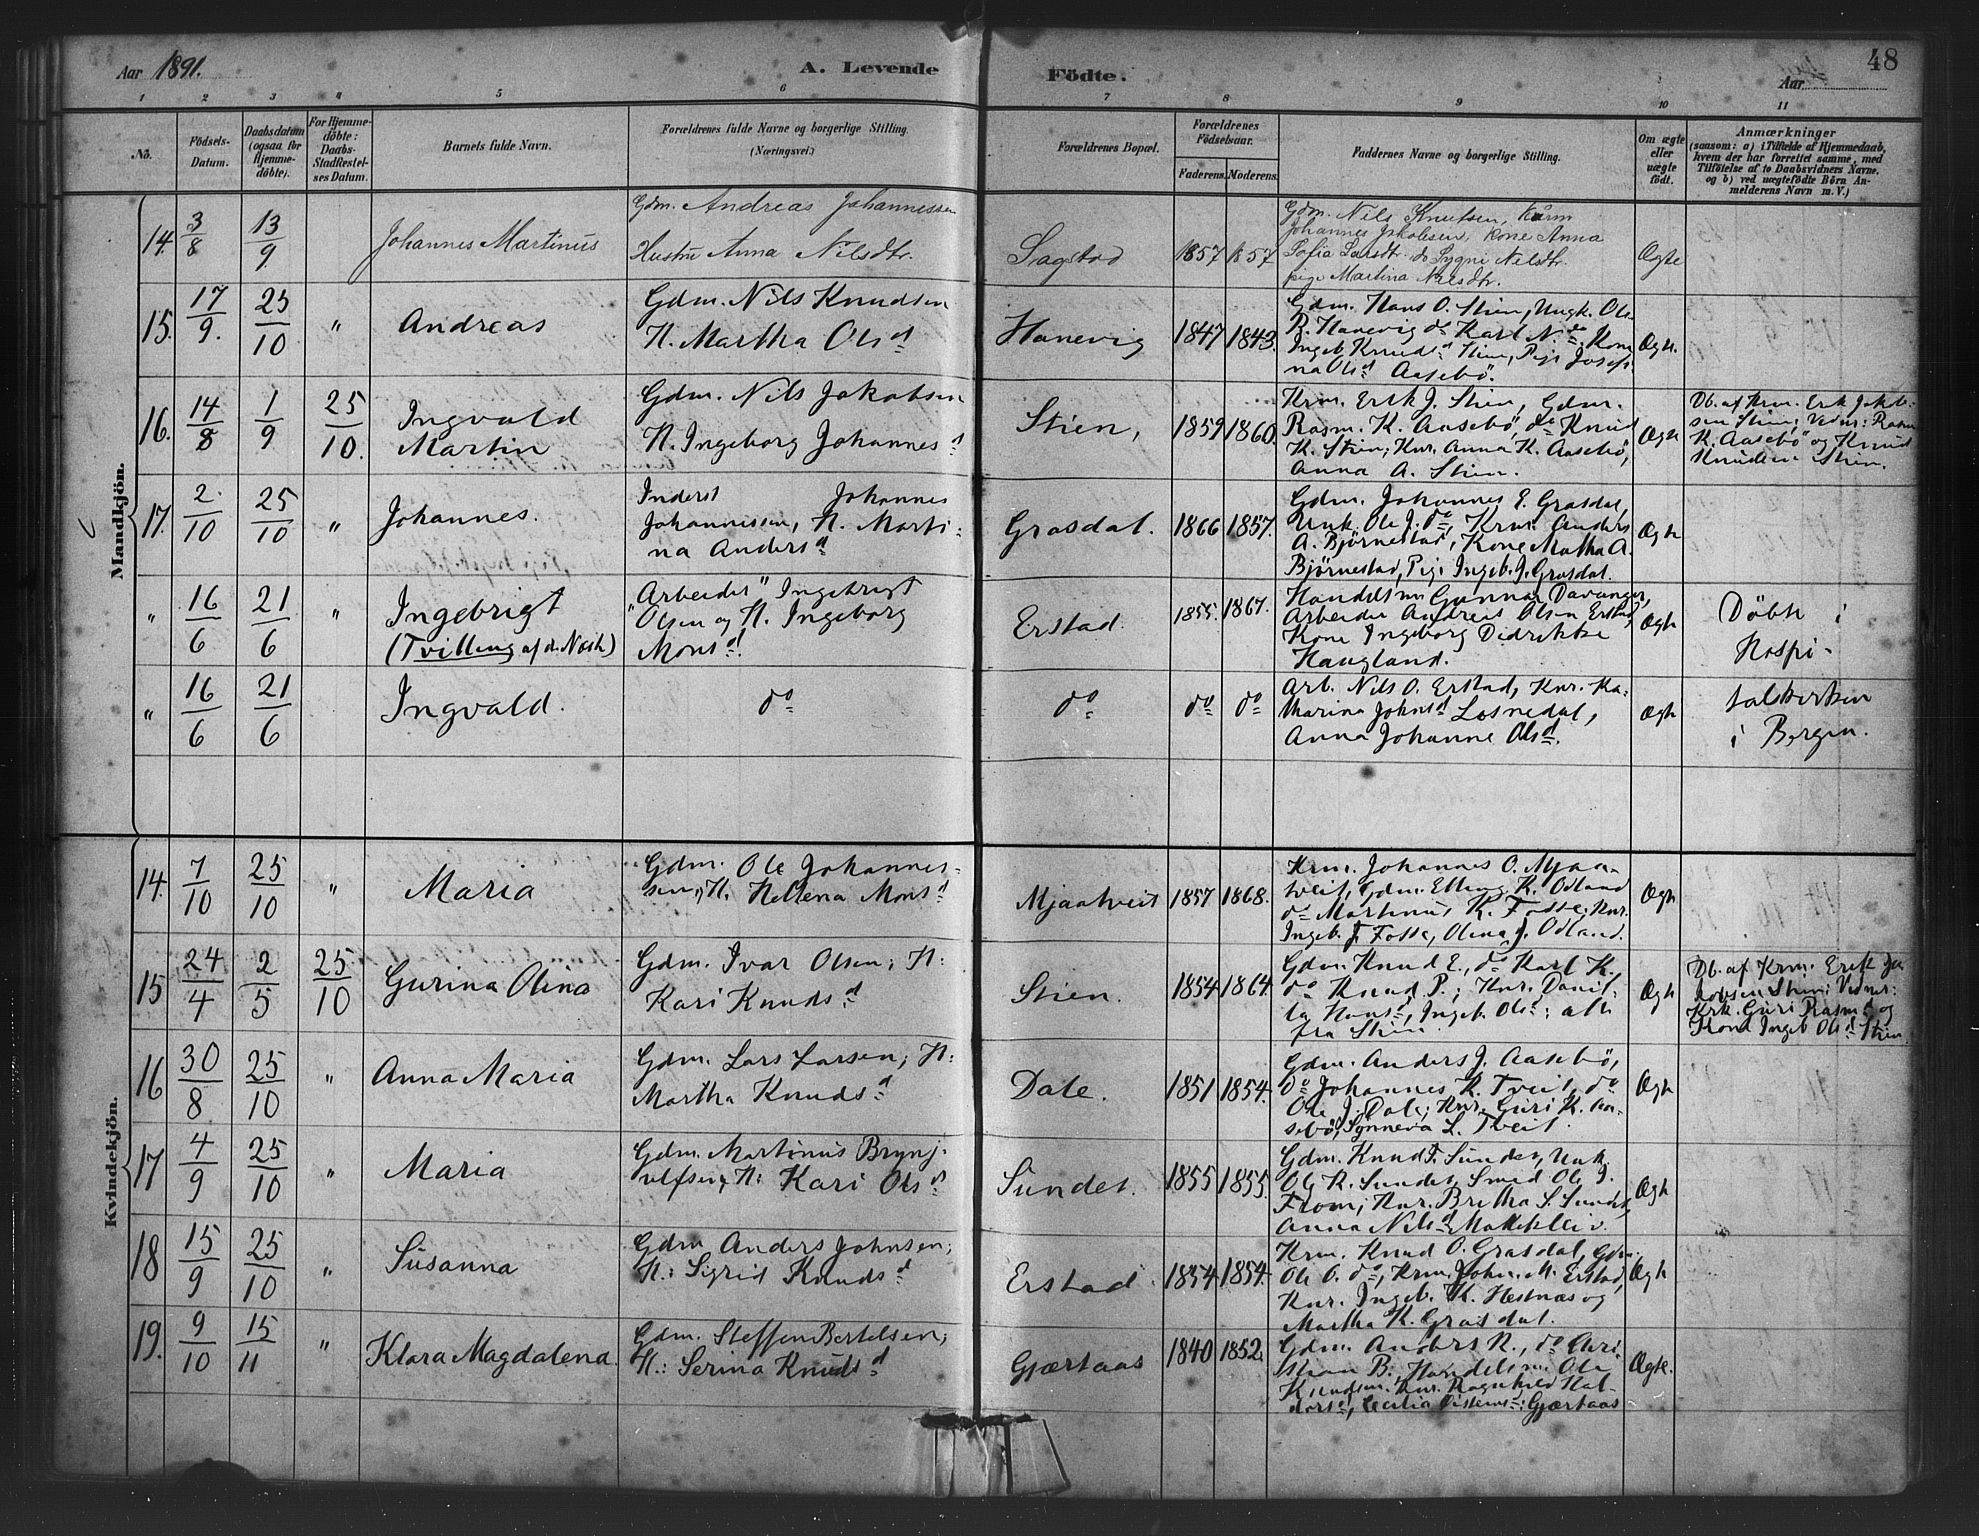 Aar 1891.
A. Levende Födte.
Aar
48
1 2 3 4 5 6 7 8 9 10 11
No.
Födsels-
Datum.
Daabsdatum
(ogsaa for
Hjemme-
döbte).
For Hjemme-
döbte:
Daabs-
Stadfæstel-
ses Datum.
Barnets fulde Navn.
Forældrenes fulde Navne og borgerlige Stilling.
(Næringsvei.)
Forældrenes Bopæl.
Forældrenes
Födselsaar.
Faderens. Moderens.
Faddernes Navne og borgerlige Stilling.
Om ægte
eller
uægte
födt.
Anmærkninger
(saasom: a) i Tilfælde af Hjemmedaab,
hvem der har forrettet samme, med
Tilföielse af to Daabsvidners Navne,
og b) ved uægtefödte Börn An-
melderens Navn m. V.)
Mandkjön.
14. 3/8 13/9
Johannes Martinus
Gdm. Andreas Johannessen
Hustru Anna Nilsdtr.
Sagstad
1857 1857
Gdm. Nils Knutsen, Kårm
Johannes Jakobsen, Kone Anna
Sofia Larsdtr. do Sygni Nilsdtr.
pige Martina Nilsdtr.
Ægte
15. 17/9. 25/10 "
Andreas
Gdm. Nils Knudsen
H. Martha Olsd
Hanevig
1847 1843.
Gdm. Hans O. Stien, Ungk. Ole
R. Hanevig do Karl N. do, Kone
Ingeb. Knudsd Stien, Pige Josefi-
na Olsd Aasebö.
Ægte.
16. 14/8 1/9 25/10.
Ingvald
Martin
Gdm. Nils Jakobsen
H. Ingeborg Johannesd
Stien,
1859 1860.
Krm. Erik J. Stien, Gdm.
Rasm. K. Aasebö, do Knud
K. Stien, Knr. Anna K. Aasebö,
Anna A. Stien.
Ægte
Db. af Krm. Erik Jakob-
sen Stien; Vidner: Rasm
K. Aasebö og Knud
Knudsen Stien.
17. 2/10 25/10 "
Johannes.
Inderst Johannes
Johannessen, H. Marti-
na Andersd
Grasdal.
1866 1857.
Gdm. Johannes E. Grasdal,
Unk. Ole J. do, Krm. Anders
A. Bjørnestad, Kone Matha A.
Bjørnestad, Pige Ingeb. J. Grasdal.
Ægte
" 16/6 21/6 "
Ingebrigt
(Tvilling af d. Næste)
"Arbeider" Ingebrigt
Olsen og H. Ingeborg
Monsd.
Erstad.
1855. 1867.
Handelsm Gunnar Davanger,
Arbeider Andreas Olsen Erstad,
Kone Ingeborg Didrikke
Haugland.
Ægte
Döbte i
Hospi-
talskirken
i Bergen.
" 16/6 21/6
Ingvald.
do
do
do do
Arb. Nils O. Erstad, Knr. Ka-
tharina Johnsd Losnedal,
Anna Johanne Olsd.
Ægte
Kvindekjön.
14. 7/10 25/10 "
Maria
Gdm. Ole Johannes-
sen, H. Hellena Monsd
Mjaatveit
1857 1868.
Krm. Johannes O. Mjaa-
tveit, Gdm. Elling K. Odland
do Martinus K. Fosse; Knr.
Ingeb. J. Fosse, Olina J. Odland.
Ægte
15 24/4 2/5 25/10
Gurina Olina
Gdm. Ivar Olsen; H:
Kari Knudsd
Stien.
1854 1864.
Gdm. Knud E., do Karl K.,
do Knud P.; Knr. Danil-
la Hansd, Ingeb. Olsd: alle
fra Stien.
Ægte
Db. af Krm. Erik Ja-
kobsen Stien; Vidner:
Krk. Guri Rasmd og
Kone Ingeb Olsd Stien.
16 30/8 25/10 "
Anna Maria
Gdm. Lars Larsen; H:
Martha Knudsd
Dale.
1851 1854.
Gdm. Anders J. Aasebö,
do Johannes K. Tveit, do
Ole J. Dale; Knr. Guri K. Aa-
sebö, Synneva L. Tveit.
Ægte
17 4/9 25/10 "
Maria
Gdm. Martinus Brynj-
ulfsen, H: Kari Olsd
Sundet.
1855 1855.
Gdm. Knud T. Sundet, Unk.
Ole K. Sundet, Smed Ole J.
From; Knr. Bretha S. Sundet,
Anna Nilsd Mallekleiv.
Ægte
18 15/9 25/10 "
Susanna
Gdm Anders Johnsen;
H.: Sigrid Knudsd
Erstad.
1854 1854.
Krm. Knud O. Grasdal, Gdm.
Ole O. do, Krm. John M. Erstad,
Knr. Ingeb. K. Hestnæs og
Martha K. Grasdal.
Ægte
19. 9/10 15/11 "
Klara Magdalena.
Gdm. Steffen Bertelsen;
H.: Serina Knudsd
Gjærtaas
1840 1852.
Gdm. Anders N., do Chri-
stian B., Handelsm. Ole
Knudsen, Knr. Ragnhild Hal-
dorsd, Cecilia Gjærtaas
Ægte.